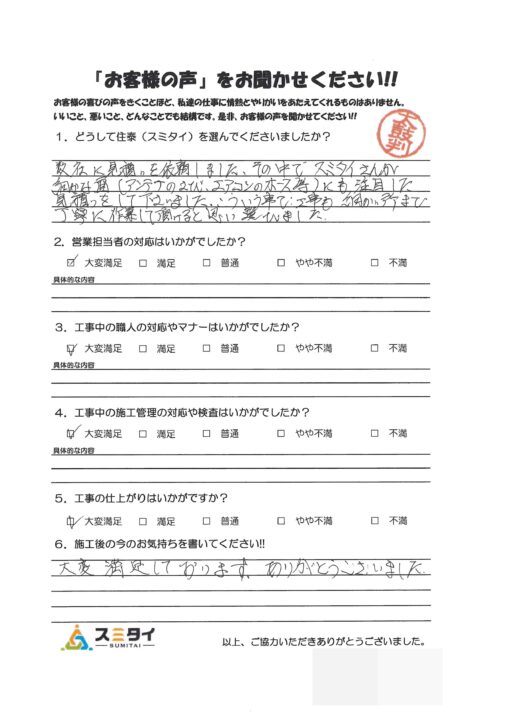 「お客様の声」をお聞かせください!!
お客様の喜びの声をきくことほど、私達の仕事に情熱とやりがいをあたえてくれるものはありません。
いいこと、悪いこと、どんなことでも結構です。是非、お客様の声を聞かせてください!!
太鼓判
1．どうして住泰（スミタイ）を選んでくださいましたか？
数社に見積りを依頼しました。その中で、スミタイさんが
細かな面（アンテナのサイズ、エアコンのホース等）にも注目した
見積りをして下さいました。こういう事で工事も細かい所まで
丁寧に作業して頂けると思い選びました。
2．営業担当者の対応はいかがでしたか？
☑ 大変満足 □ 満足 □ 普通 □ やや不満 □ 不満
具体的な内容
3．工事中の職人の対応やマナーはいかがでしたか？
☑ 大変満足 □ 満足 □ 普通 □ やや不満 □ 不満
具体的な内容
4．工事中の施工管理の対応や検査はいかがでしたか？
☑ 大変満足 □ 満足 □ 普通 □ やや不満 □ 不満
具体的な内容
5．工事の仕上がりはいかがですか？
☑ 大変満足 □ 満足 □ 普通 □ やや不満 □ 不満
6．施工後の今のお気持ちを書いてください!!
大変満足しております。ありがとうございました。
スミタイ
SUMITAI
以上、ご協力いただきありがとうございました。